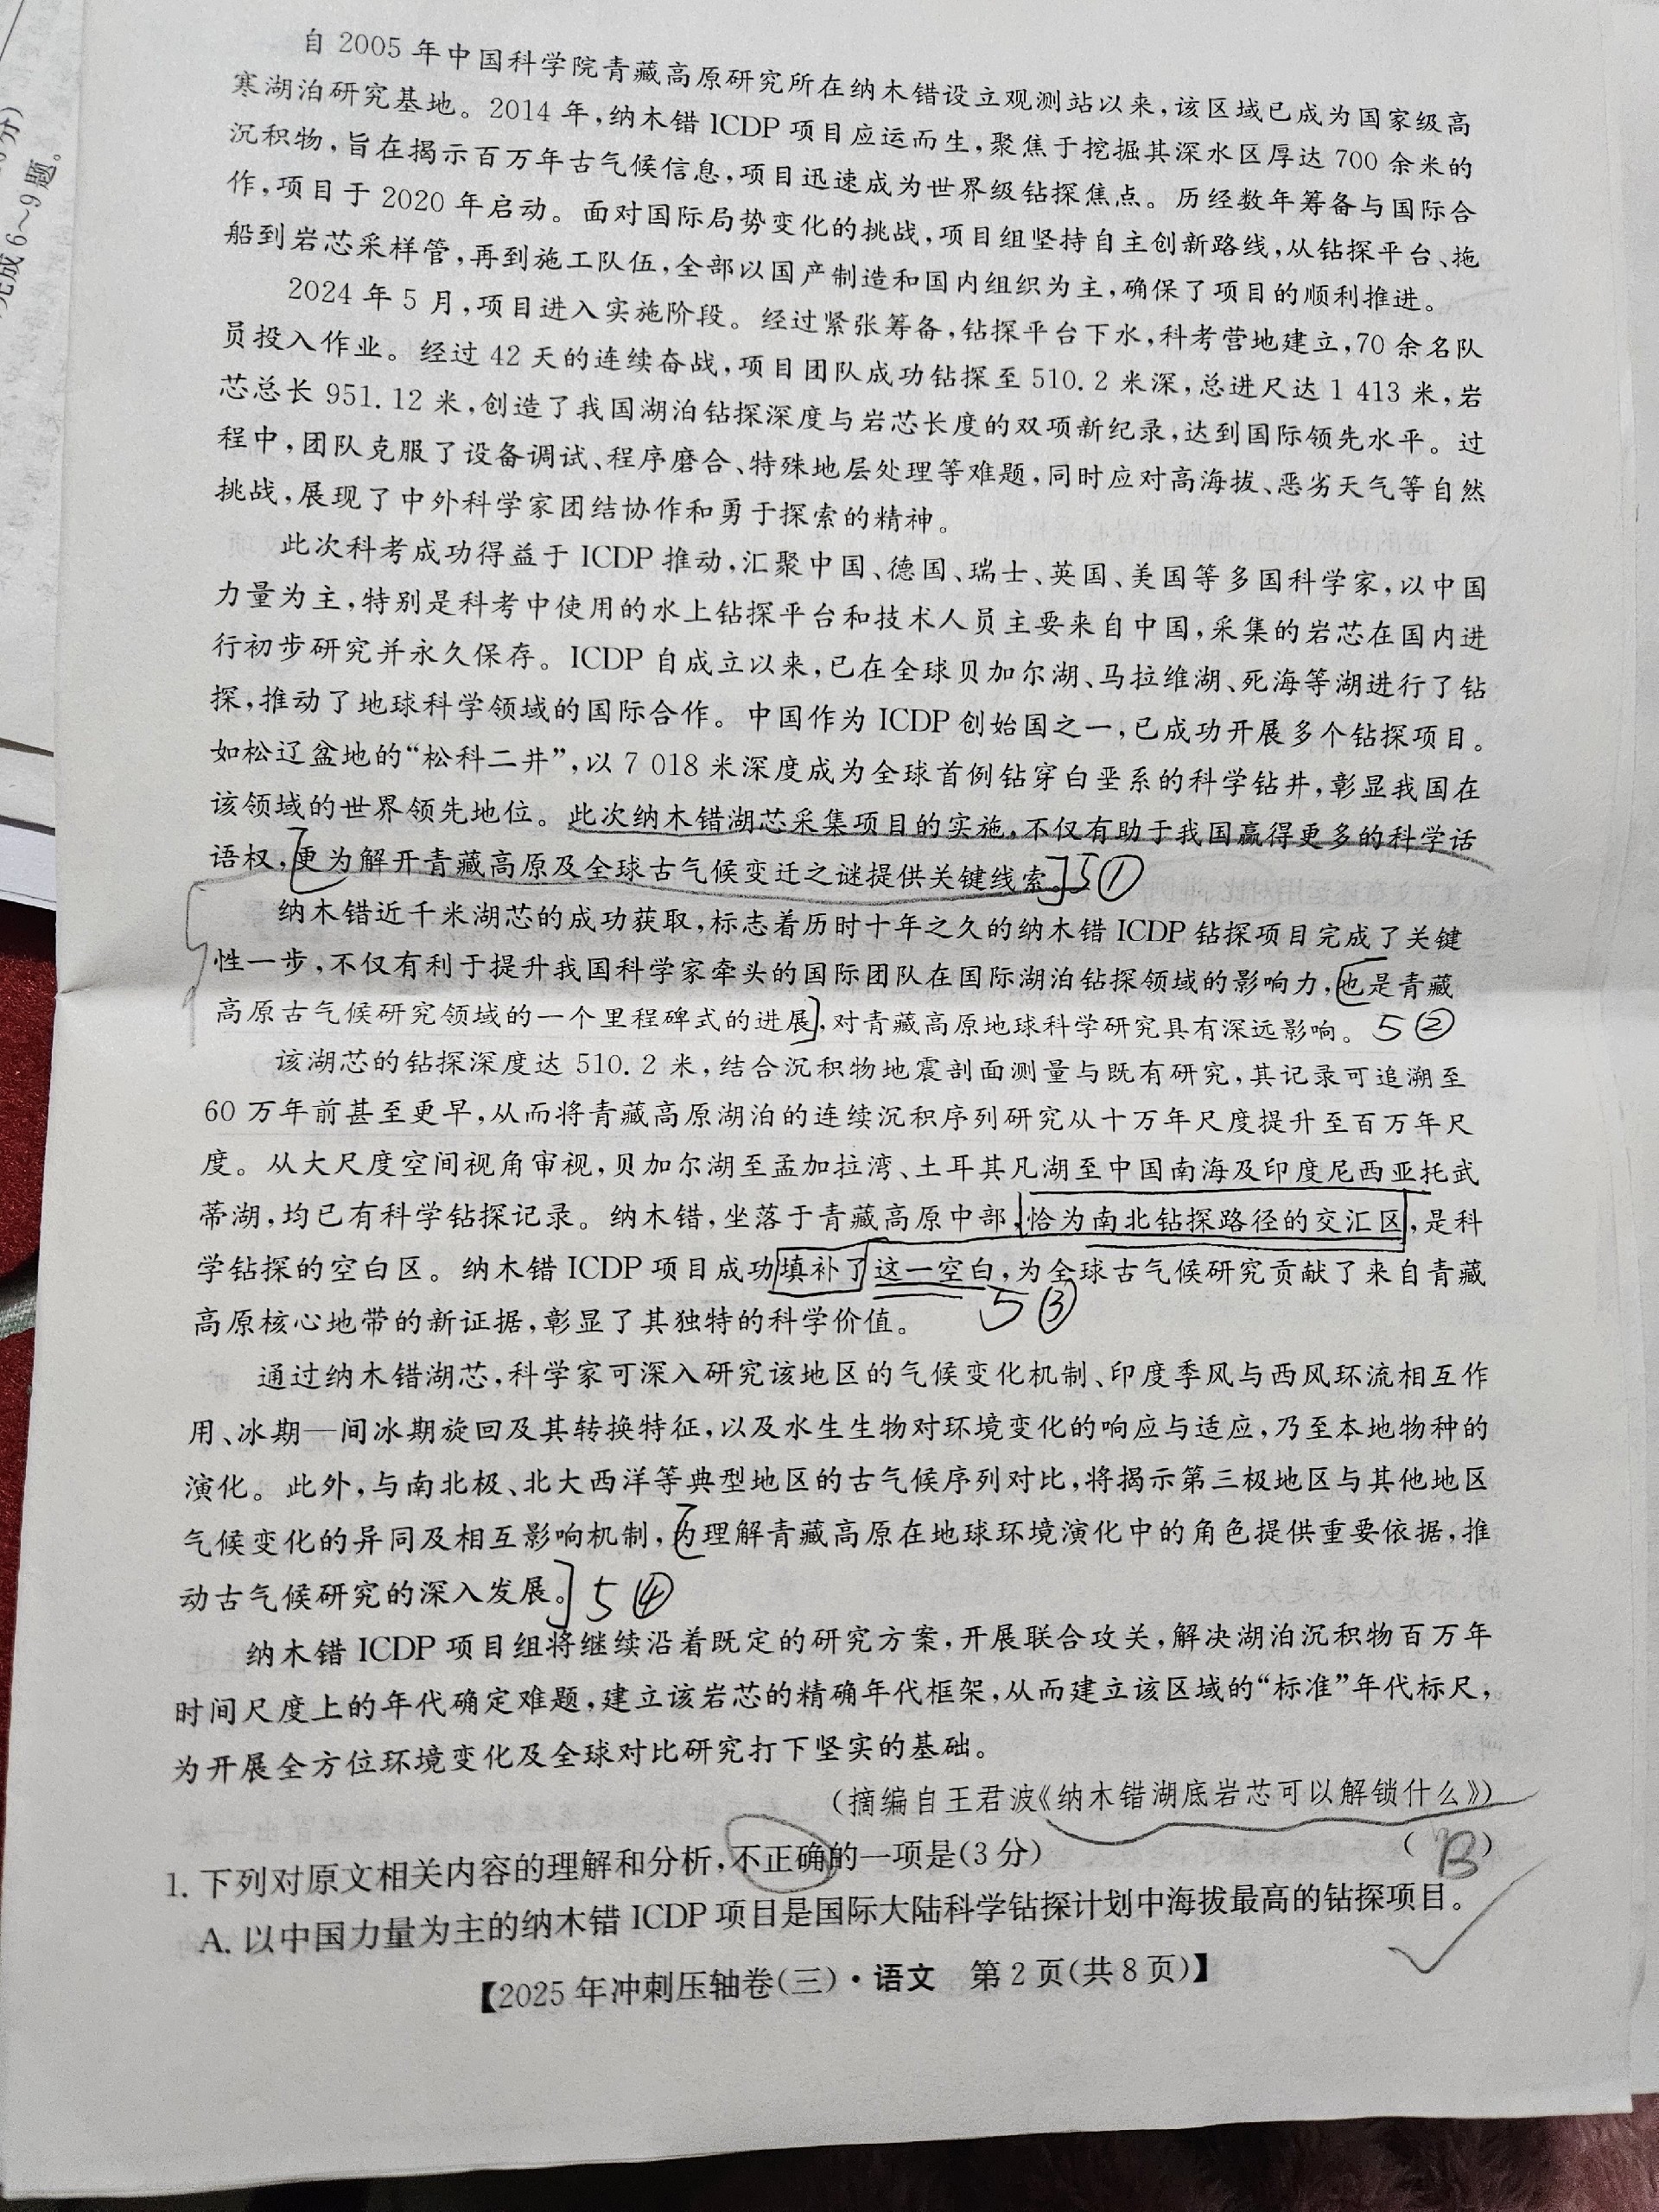 成6～9题。
自2005年中国科学院青藏高原研究所在纳木错设立观测站以来,该区域已成为国家级高
寒湖泊研究基地。2014年,纳木错ICDP项目应运而生,聚焦于挖掘其深水区厚达700余米的
沉积物,旨在揭示百万年古气候信息,项目迅速成为世界级钻探焦点。历经数年筹备与国际合
作,项目于2020年启动。面对国际局势变化的挑战,项目组坚持自主创新路线,从钻探平台、拖
船到岩芯采样管,再到施工队伍,全部以国产制造和国内组织为主,确保了项目的顺利推进。
2024年5月,项目进入实施阶段。经过紧张筹备,钻探平台下水,科考营地建立,70余名队
员投入作业。经过42天的连续奋战,项目团队成功钻探至510.2米深,总进尺达1 413米,岩
芯总长951.12米,创造了我国湖泊钻探深度与岩芯长度的双项新纪录,达到国际领先水平。过
程中,团队克服了设备调试、程序磨合、特殊地层处理等难题,同时应对高海拔、恶劣天气等自然
挑战,展现了中外科学家团结协作和勇于探索的精神。
此次科考成功得益于ICDP推动,汇聚中国、德国、瑞士、英国、美国等多国科学家,以中国
力量为主,特别是科考中使用的水上钻探平台和技术人员主要来自中国,采集的岩芯在国内进
行初步研究并永久保存。ICDP自成立以来,已在全球贝加尔湖、马拉维湖、死海等湖进行了钻
探,推动了地球科学领域的国际合作。中国作为ICDP创始国之一,已成功开展多个钻探项目。
如松辽盆地的“松科二井”,以7 018米深度成为全球首例钻穿白垩系的科学钻井,彰显我国在
该领域的世界领先地位。此次纳木错湖芯采集项目的实施,不仅有助于我国赢得更多的科学话
语权,更为解开青藏高原及全球古气候变迁之谜提供关键线索。5①
纳木错近千米湖芯的成功获取,标志着历时十年之久的纳木错ICDP钻探项目完成了关键
性一步,不仅有利于提升我国科学家牵头的国际团队在国际湖泊钻探领域的影响力,也是青藏
高原古气候研究领域的一个里程碑式的进展,对青藏高原地球科学研究具有深远影响。5②
该湖芯的钻探深度达510.2米,结合沉积物地震剖面测量与既有研究,其记录可追溯至
60万年前甚至更早,从而将青藏高原湖泊的连续沉积序列研究从十万年尺度提升至百万年尺
度。从大尺度空间视角审视,贝加尔湖至孟加拉湾、土耳其凡湖至中国南海及印度尼西亚托武
蒂湖,均已有科学钻探记录。纳木错,坐落于青藏高原中部,恰为南北钻探路径的交汇区,是科
学钻探的空白区。纳木错ICDP项目成功填补了这一空白,为全球古气候研究贡献了来自青藏
高原核心地带的新证据,彰显了其独特的科学价值。5③
通过纳木错湖芯,科学家可深入研究该地区的气候变化机制、印度季风与西风环流相互作
用、冰期—间冰期旋回及其转换特征,以及水生生物对环境变化的响应与适应,乃至本地物种的
演化。此外,与南北极、北大西洋等典型地区的古气候序列对比,将揭示第三极地区与其他地区
气候变化的异同及相互影响机制,为理解青藏高原在地球环境演化中的角色提供重要依据,推
动古气候研究的深入发展。5④
纳木错ICDP项目组将继续沿着既定的研究方案,开展联合攻关,解决湖泊沉积物百万年
时间尺度上的年代确定难题,建立该岩芯的精确年代框架,从而建立该区域的“标准”年代标尺,
为开展全方位环境变化及全球对比研究打下坚实的基础。
(摘编自王君波《纳木错湖底岩芯可以解锁什么》)
1.下列对原文相关内容的理解和分析,不正确的一项是(3分) (B)
A.以中国力量为主的纳木错ICDP项目是国际大陆科学钻探计划中海拔最高的钻探项目。
【2025年冲刺压轴卷(三)·语文 第2页(共8页)】